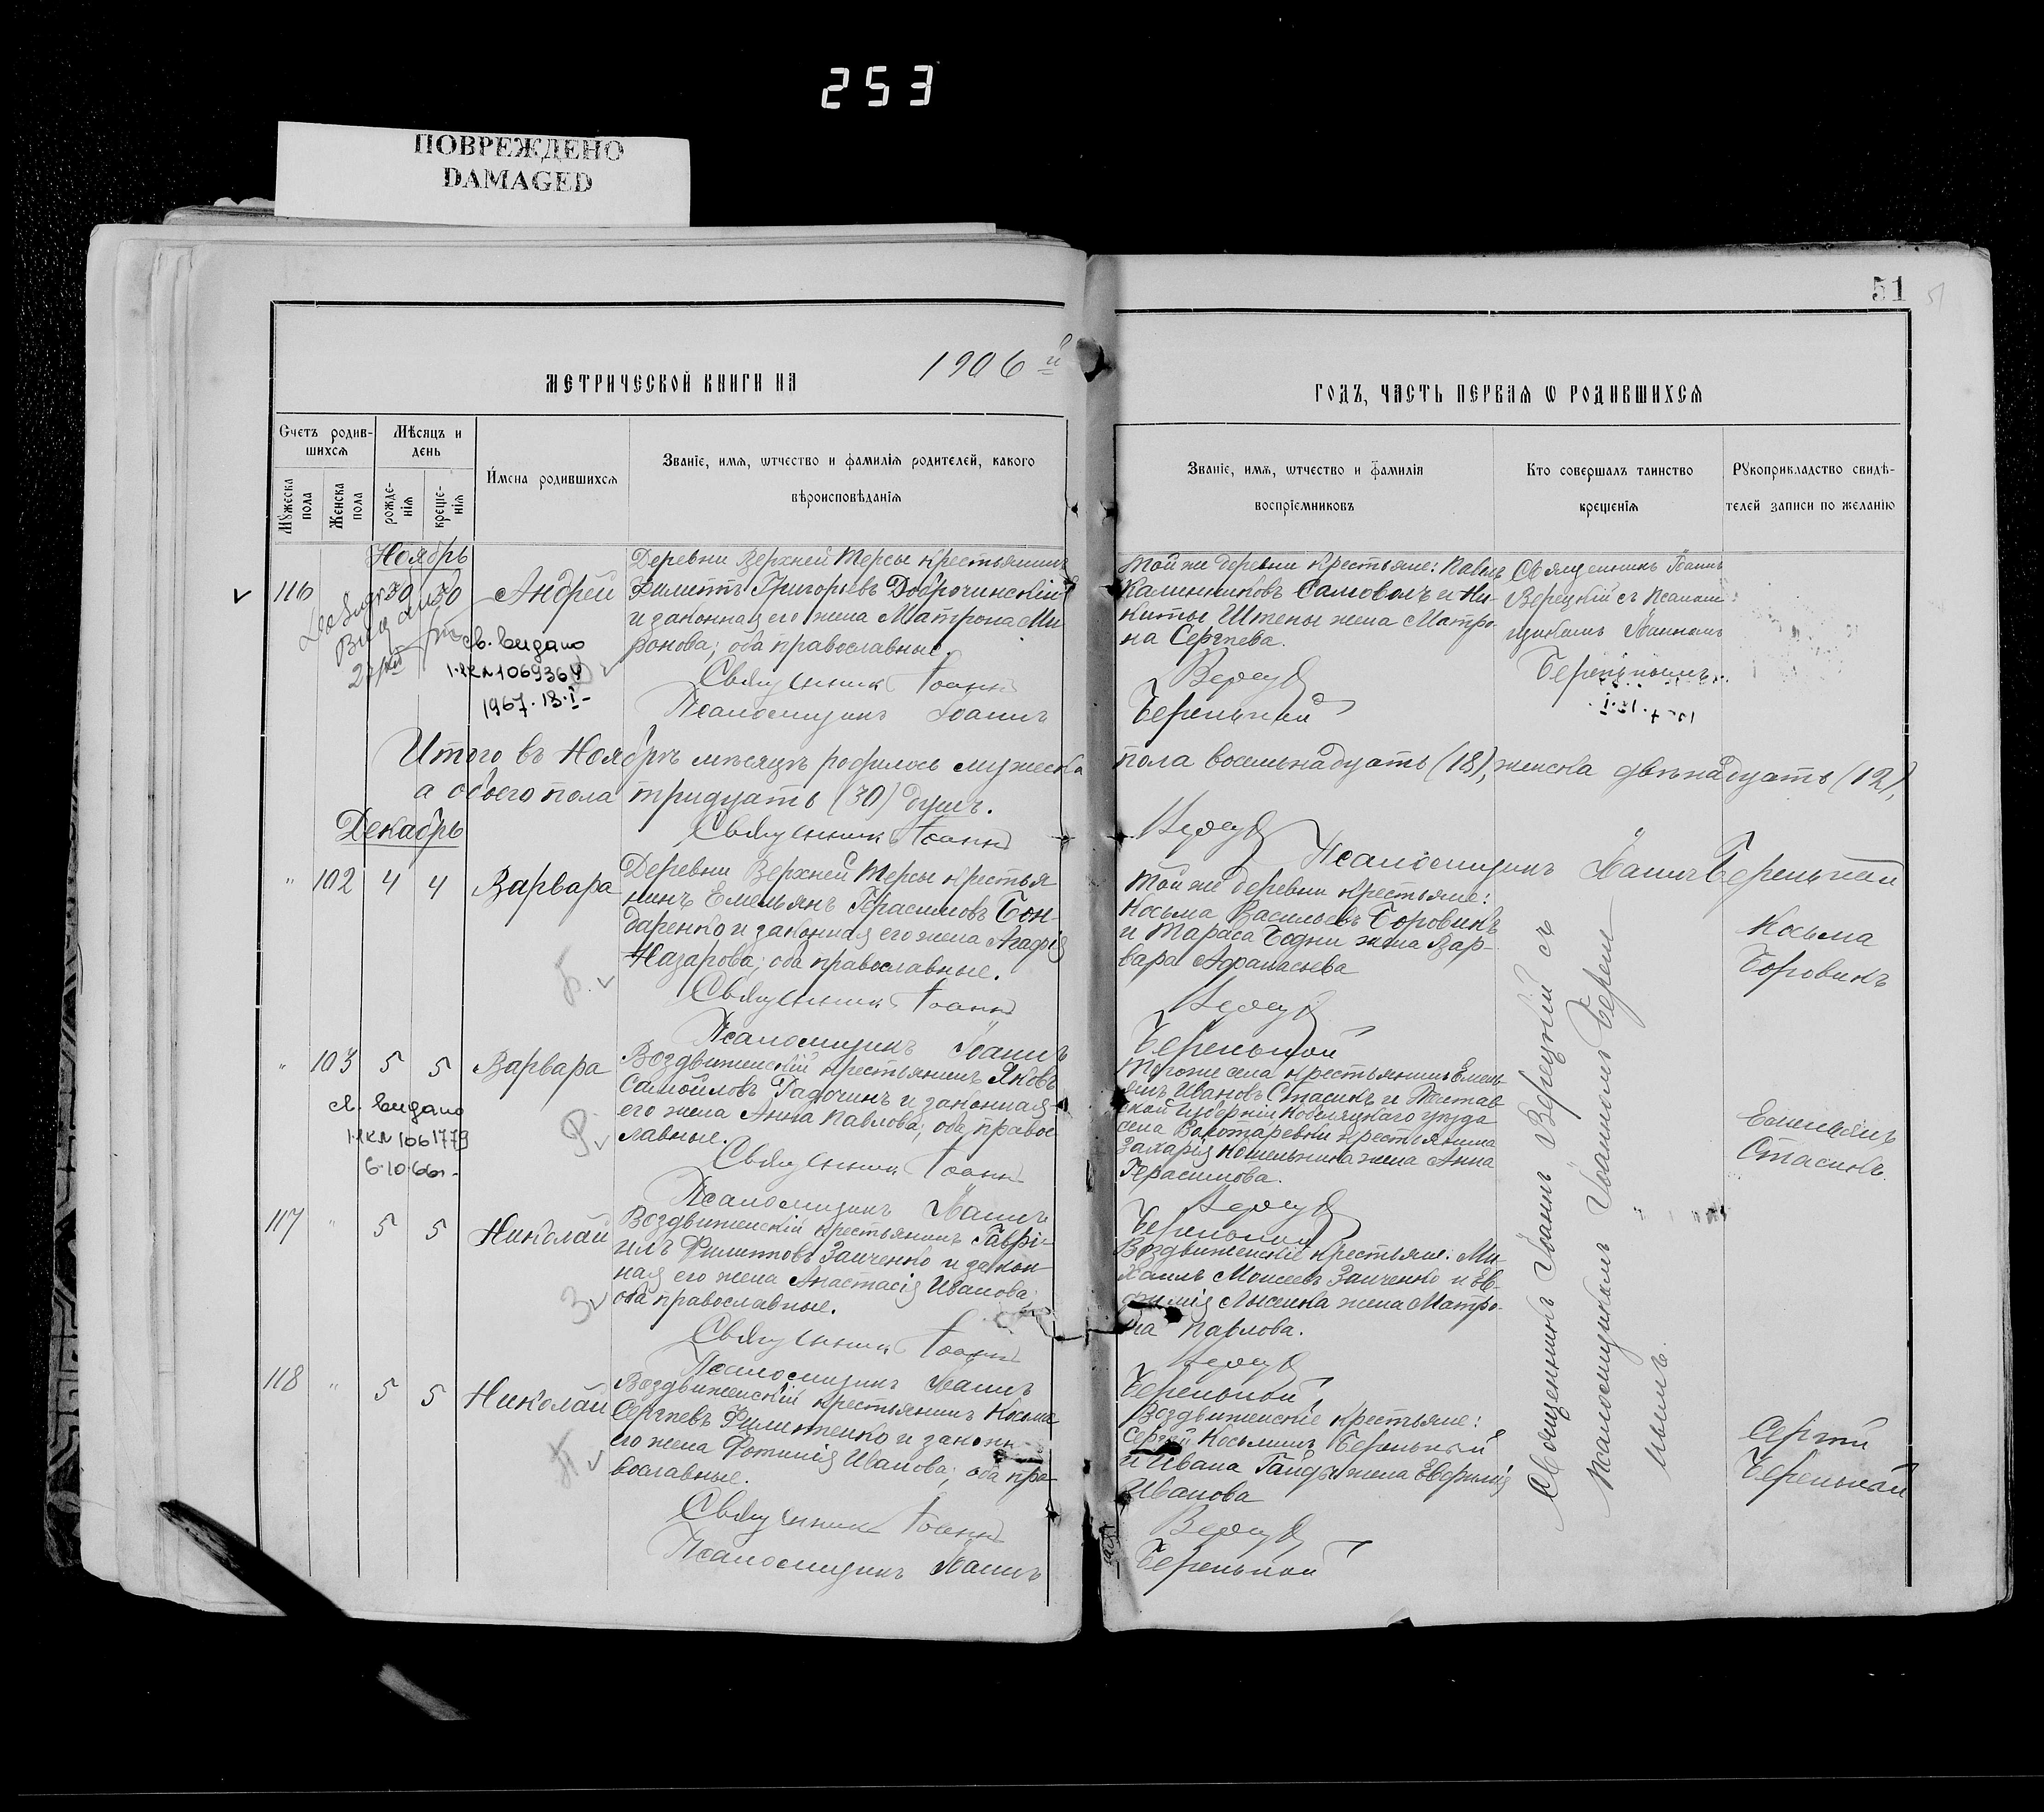 253
ПОВРЕЖДЕНО
DAMAGED
51
МЕТРИЧЕСКОЙ КНИГИ НА 1906 й
ГОДЪ, ЧАСТЬ ПЕРВАЯ Ѡ РОДИВШИХСЯ
Счетъ родив-
шихся
Мѣсяцъ и
день
Мужеска
пола
Женска
пола
рожде-
нія
креще-
нія
Имена родившихся
Званіе, имя, ѡтчество и фамилія родителей, какого
вѣроисповѣданія
Званіе, имя, ѡтчество и фамилія
воспріемниковъ
Кто совершалъ таинство
крещенія
Рукоприкладство свидѣ-
телей записи по желанію
Ноябрь
116 30 30 Андрей
Деревни Верхней Терсы крестьянинъ
Филиппъ Григорьевъ Доброчинскій
и законная его жена Матрона Ми-
ронова; оба православные.
Священникъ Іоаннъ
Псаломщикъ Іоаннъ
св. видано
1-КЛ №1069364
1967. 18.I-
Той же деревни крестьяне: Павелъ
Калинниковъ Самоволъ и Ни-
киты Штепы жена Матро-
на Сергѣева.
Верец
Беренькой
Священникъ Іоаннъ
Верецкій съ Псалом-
щикомъ Іоанномъ
Беренькимъ.
Итого въ Ноябрѣ мѣсяцѣ родилось мужеска
пола восемнадцать (18), женска двѣнадцать (12),
а обоего пола тридцать (30) душъ.
Священникъ Іоаннъ
Верец
Псаломщикъ Іоаннъ Беренькой
Декабрь
" 102 4 4 Варвара
Деревни Верхней Терсы крестья
нинъ Емельянъ Герасимовъ Бон-
даренко и законная его жена Агафія
Назарова; оба православные.
Священникъ Іоаннъ
Псаломщикъ Іоаннъ
Той же деревни крестьяне:
Косьма Васильевъ Боровикъ
и Тараса Бедни жена Вар-
вара Афанасьева
Верец
Беренькой
Косьма
Боровикъ
" 103 5 5 Варвара
св. видано
1-КЛ 1061779
6.10.66г.
Воздвиженскій крестьянинъ Яковъ
Самойловъ Радочинъ и законная
его жена Анна Павлова; оба право-
славные.
Священникъ Іоаннъ
Псаломщикъ Іоаннъ
Того же села крестьянинъ Емель-
янъ Ивановъ Стасикъ и Полтав-
ской губерніи Кобеляцкаго уѣзда
крестьянина
Захарія жена Анна
Герасимова.
Верец
Беренькой
Емельянъ
Стасикъ
117 " 5 5 Николай
Воздвиженскій крестьянинъ Гаврі-
илъ Филипповъ Заиченко и закон-
ная его жена Анастасія Иванова;
оба православные.
Священникъ Іоаннъ
Псаломщикъ Іоаннъ
Воздвиженскіе крестьяне: Ми-
хаилъ Моисеевъ Заиченко и Ев-
фимія Лысенка жена Матро-
на Павлова.
Верец
Беренькой
118 " 5 5 Николай
Воздвиженскій крестьянинъ Косьма
Сергѣевъ Филипенко и законн
его жена Фотинія Иванова; оба пра-
вославные.
Священникъ Іоаннъ
Псаломщикъ Іоаннъ
Воздвиженскіе крестьяне:
Сергѣй Косьминъ Беренькый
и Ивана Гайды жена Евфимія
Иванова
Верец
Беренькой
Сергѣй
Беренькой
Священникъ Іоаннъ Верецкій съ
Псаломщикомъ Іоанномъ Берен
ькимъ.